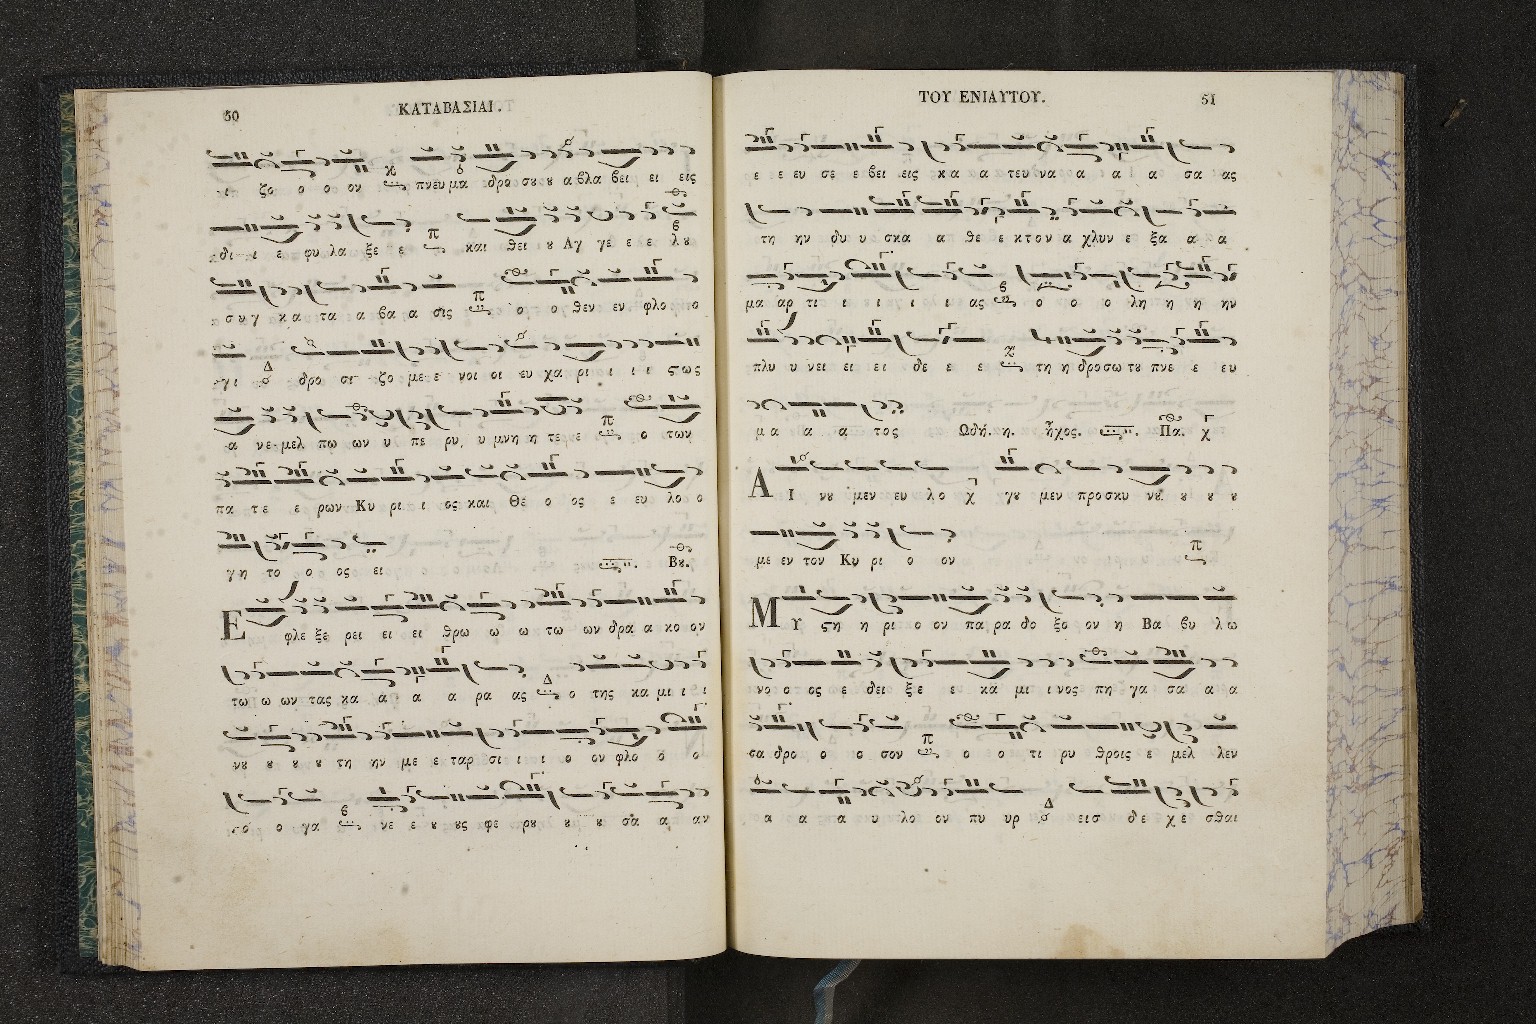 50
ΚΑΤΑΒΑΣΙΑΙ.
ι ζο ο ο ον πνευμα δρο σου ου α βλα βει ει εις
δι ι ε φυ λα ξε ε π και θει ου Αγ γε ε ε λου
συγ κα τα α βα α σις π ο ο θεν εν φλο ο
γι Δ δρο σι ζο με ε νοι οι ευ χα ρι ι ι ι ϛως
α νε μελ πω ων υ πε ρυ υ μνη η τε ε π ο των
πα τε ε ρων Κυ ρι ι ος και Θε ο ος ε ευ λο ο
γη το ο ος ει Βου.
Ε φλε ξε ρει ει ει θρω ω ω τω ων δρα α κο ον
τω ω ων τας κα α α α ρα ας Δ ο της κα μι ι ι
νου ου ου ου τη ην με ε ταρ σι ι ι ο ον φλο ο ο
ο ο γα β νε ε ου ους φε ρου ου ου σα α αν
ΤΟΥ ΕΝΙΑΥΤΟΥ.
51
ε ε ευ σε ε βει εις κα α τευ να α α α σα ας
τη ην δυ υ σκα α θε ε κτον α χλυν ε ξα α α
μα αρ τι ι ι ι ι ι ας β ο ο ο λη η η ην
πλυ υ νει ει ει δε ε ε τη η δροσω του πνε ε ευ
μα α α τος Ωδή. η. ἦχος. Πα.
ΑΙ νου μεν ευ λο γου μεν προσκυ νου ου ου ου
με εν τον Κυ ρι ο ον π
ΜΥ ϛη η ρι ο ον πα ρα δο ξο ον η Βα βυ λω
νο ο ος ε δει ξε ε κα μι ι νος πη γα σα α α
σα δρο ο ο σον π ο ο τι ρυ θροις ε μελ λεν
α α α υ λο ον πυ υρ Δ εισ δε χε σθαι